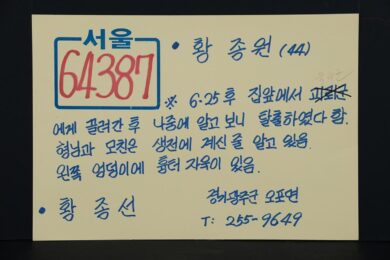 서울
64387
• 황 종원 (44)
※ 6.25 후 집앞에서
에게 끌려간 후 나중에 알고 보니 탈출하였다 함.
형님과 모친은 생전에 계신 줄 알고 있음.
왼쪽 엉덩이에 흉터 자욱이 있음.
• 황 종선
경기 광주군 오포면
T: 255-9649